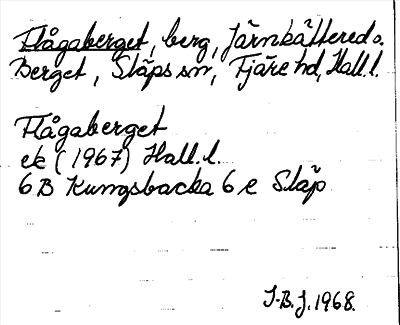 Flågaberget, berg, Järnkättered o.
Berget, Släps sn, Fjäre hd, Hall. l.
Flågaberget
ek (1967) Hall. l.
6 B Kungsbacka 6 e Släp
I-B. J. 1968.